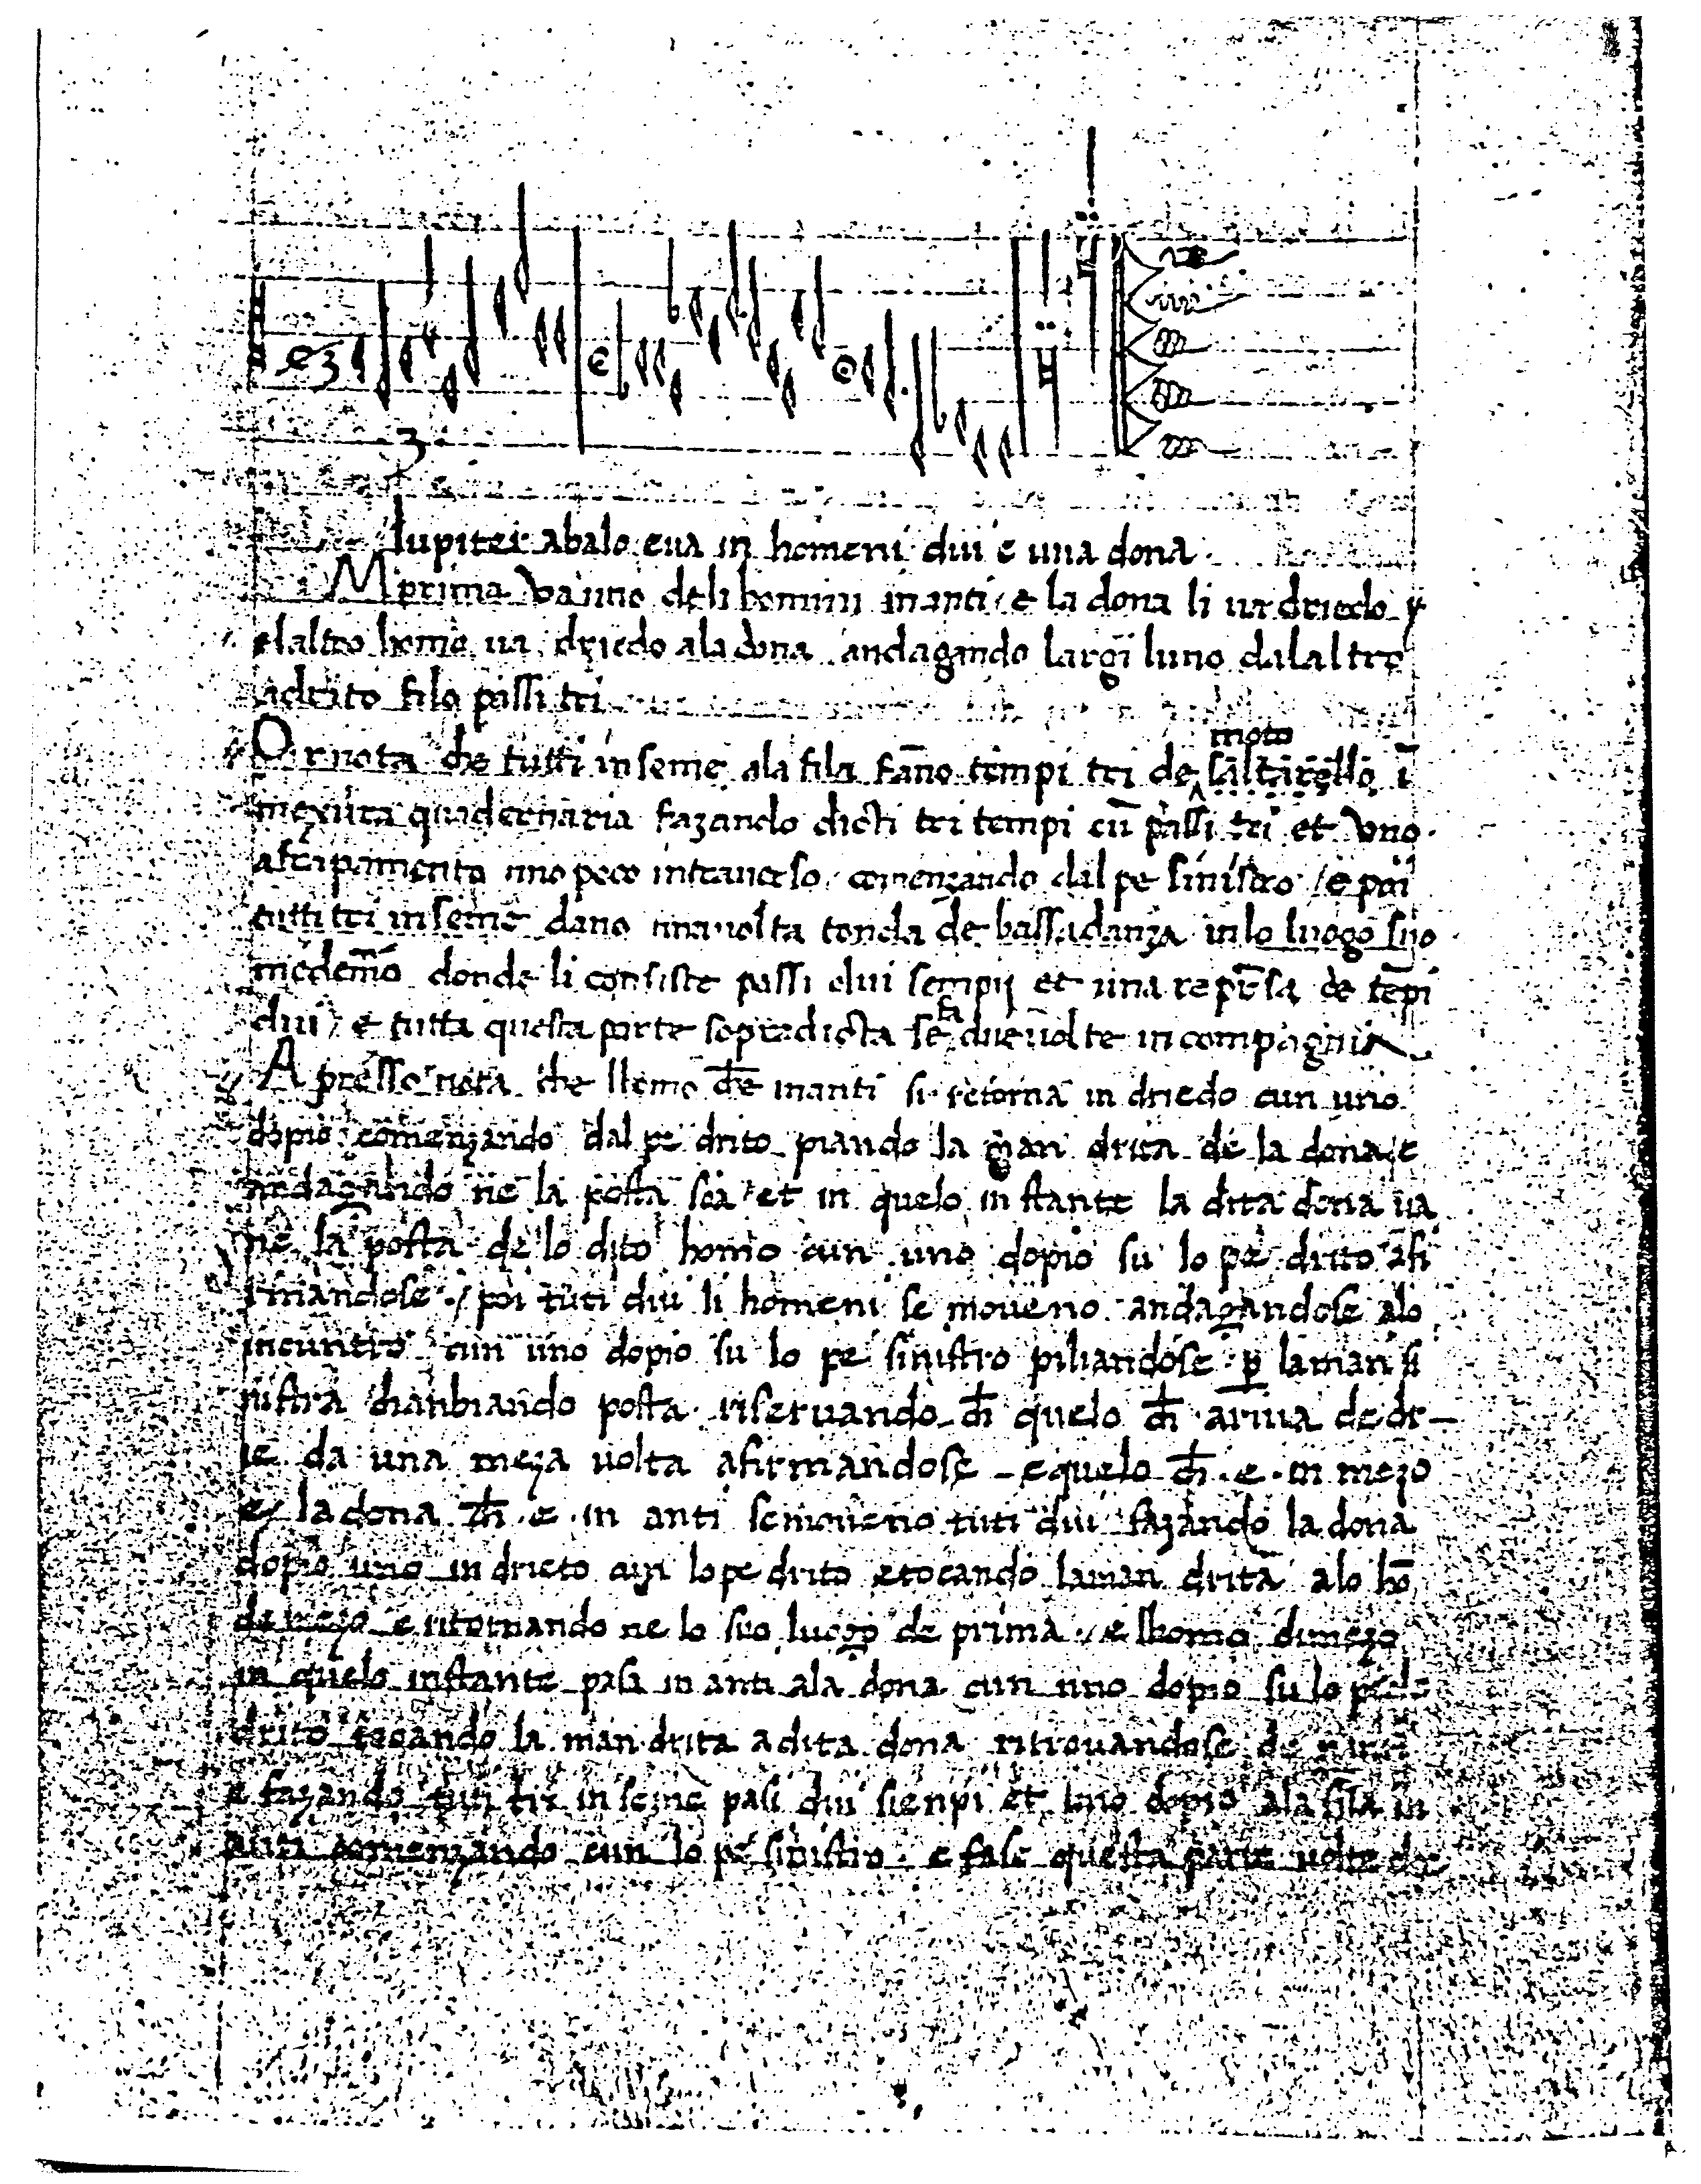 Iupiter abalo e va in homeni dui e una dona
In prima va uno deli homini inanti / e la dona li va driedo
elaltro homo va driedo ala dona andagando largi luno dalaltro
adrito filo passi tri
Or nota che tutti inseme ala fila fāno tempi tri de saltarello ī
moto
mexura quadernaria fazando dicti tri tempi cū passi tri et vno
afrapamento uno poco intraverso comenzando dal pe sinistro / e poi
tutti tri inseme dano una volta tonda de bassadanza in lo luogo suo
medemō donde li consiste passi dui sempij et una represa de tēpi
dui / e tutta questa parte sopradicta se due volte in compagnia
fa
Apresso nota che lhomo ch̄e inanti si retorna in driedo cun uno
dopio comenzando dal pe drito piando la man drita de la dona e
andagando ne la posta soa et in quelo instante la dita dona va
ne la posta de lo dito homo cun uno dopio su lo pe dritto afi
rmandose / poi tuti dui li homeni se moveno andagandose alo
incuntro cun uno dopio su lo pe sinistro piliandose p̱ laman si
nistra chanbiando posta riservando ch̄ quelo ch̄ ariva de dr
ie da una meza volta afirmandose e quelo ch̄ e in mezo
e / la dona ch̄ e in anti se moveno tuti dui fazando la dona
dopio uno in drieto cun lo pe drito e tocando laman drita alo hō
de mezo e ritornando ne lo suo luogo de prima / e lhomo di mezo
in quelo instante pasa in anti ala dona cun uno dopio su lo pede
drito tocando la man drita a dita dona ritrovandose de
e fazando tuti tri inseme pasi dui sienpi et uno dopio ala fila in
anti comenzando cun lo pe sinistro e fase questa parte volte doe